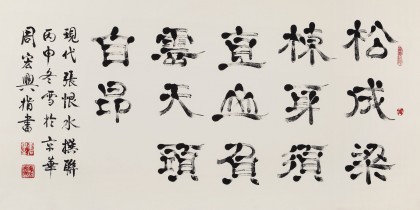 松成梁
棟身須
直血負
雲天頭
自昂
現代張恨水撰聯
丙申冬雪於京華
周宏興指書